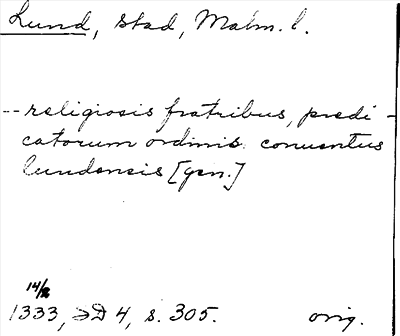 Lund, stad, Malm. l.
-- religiosis fratribus, predi-
catorum ordinis conuentus
lundensis [gen.]
14/8
1333, DD 4, s. 305. orig.